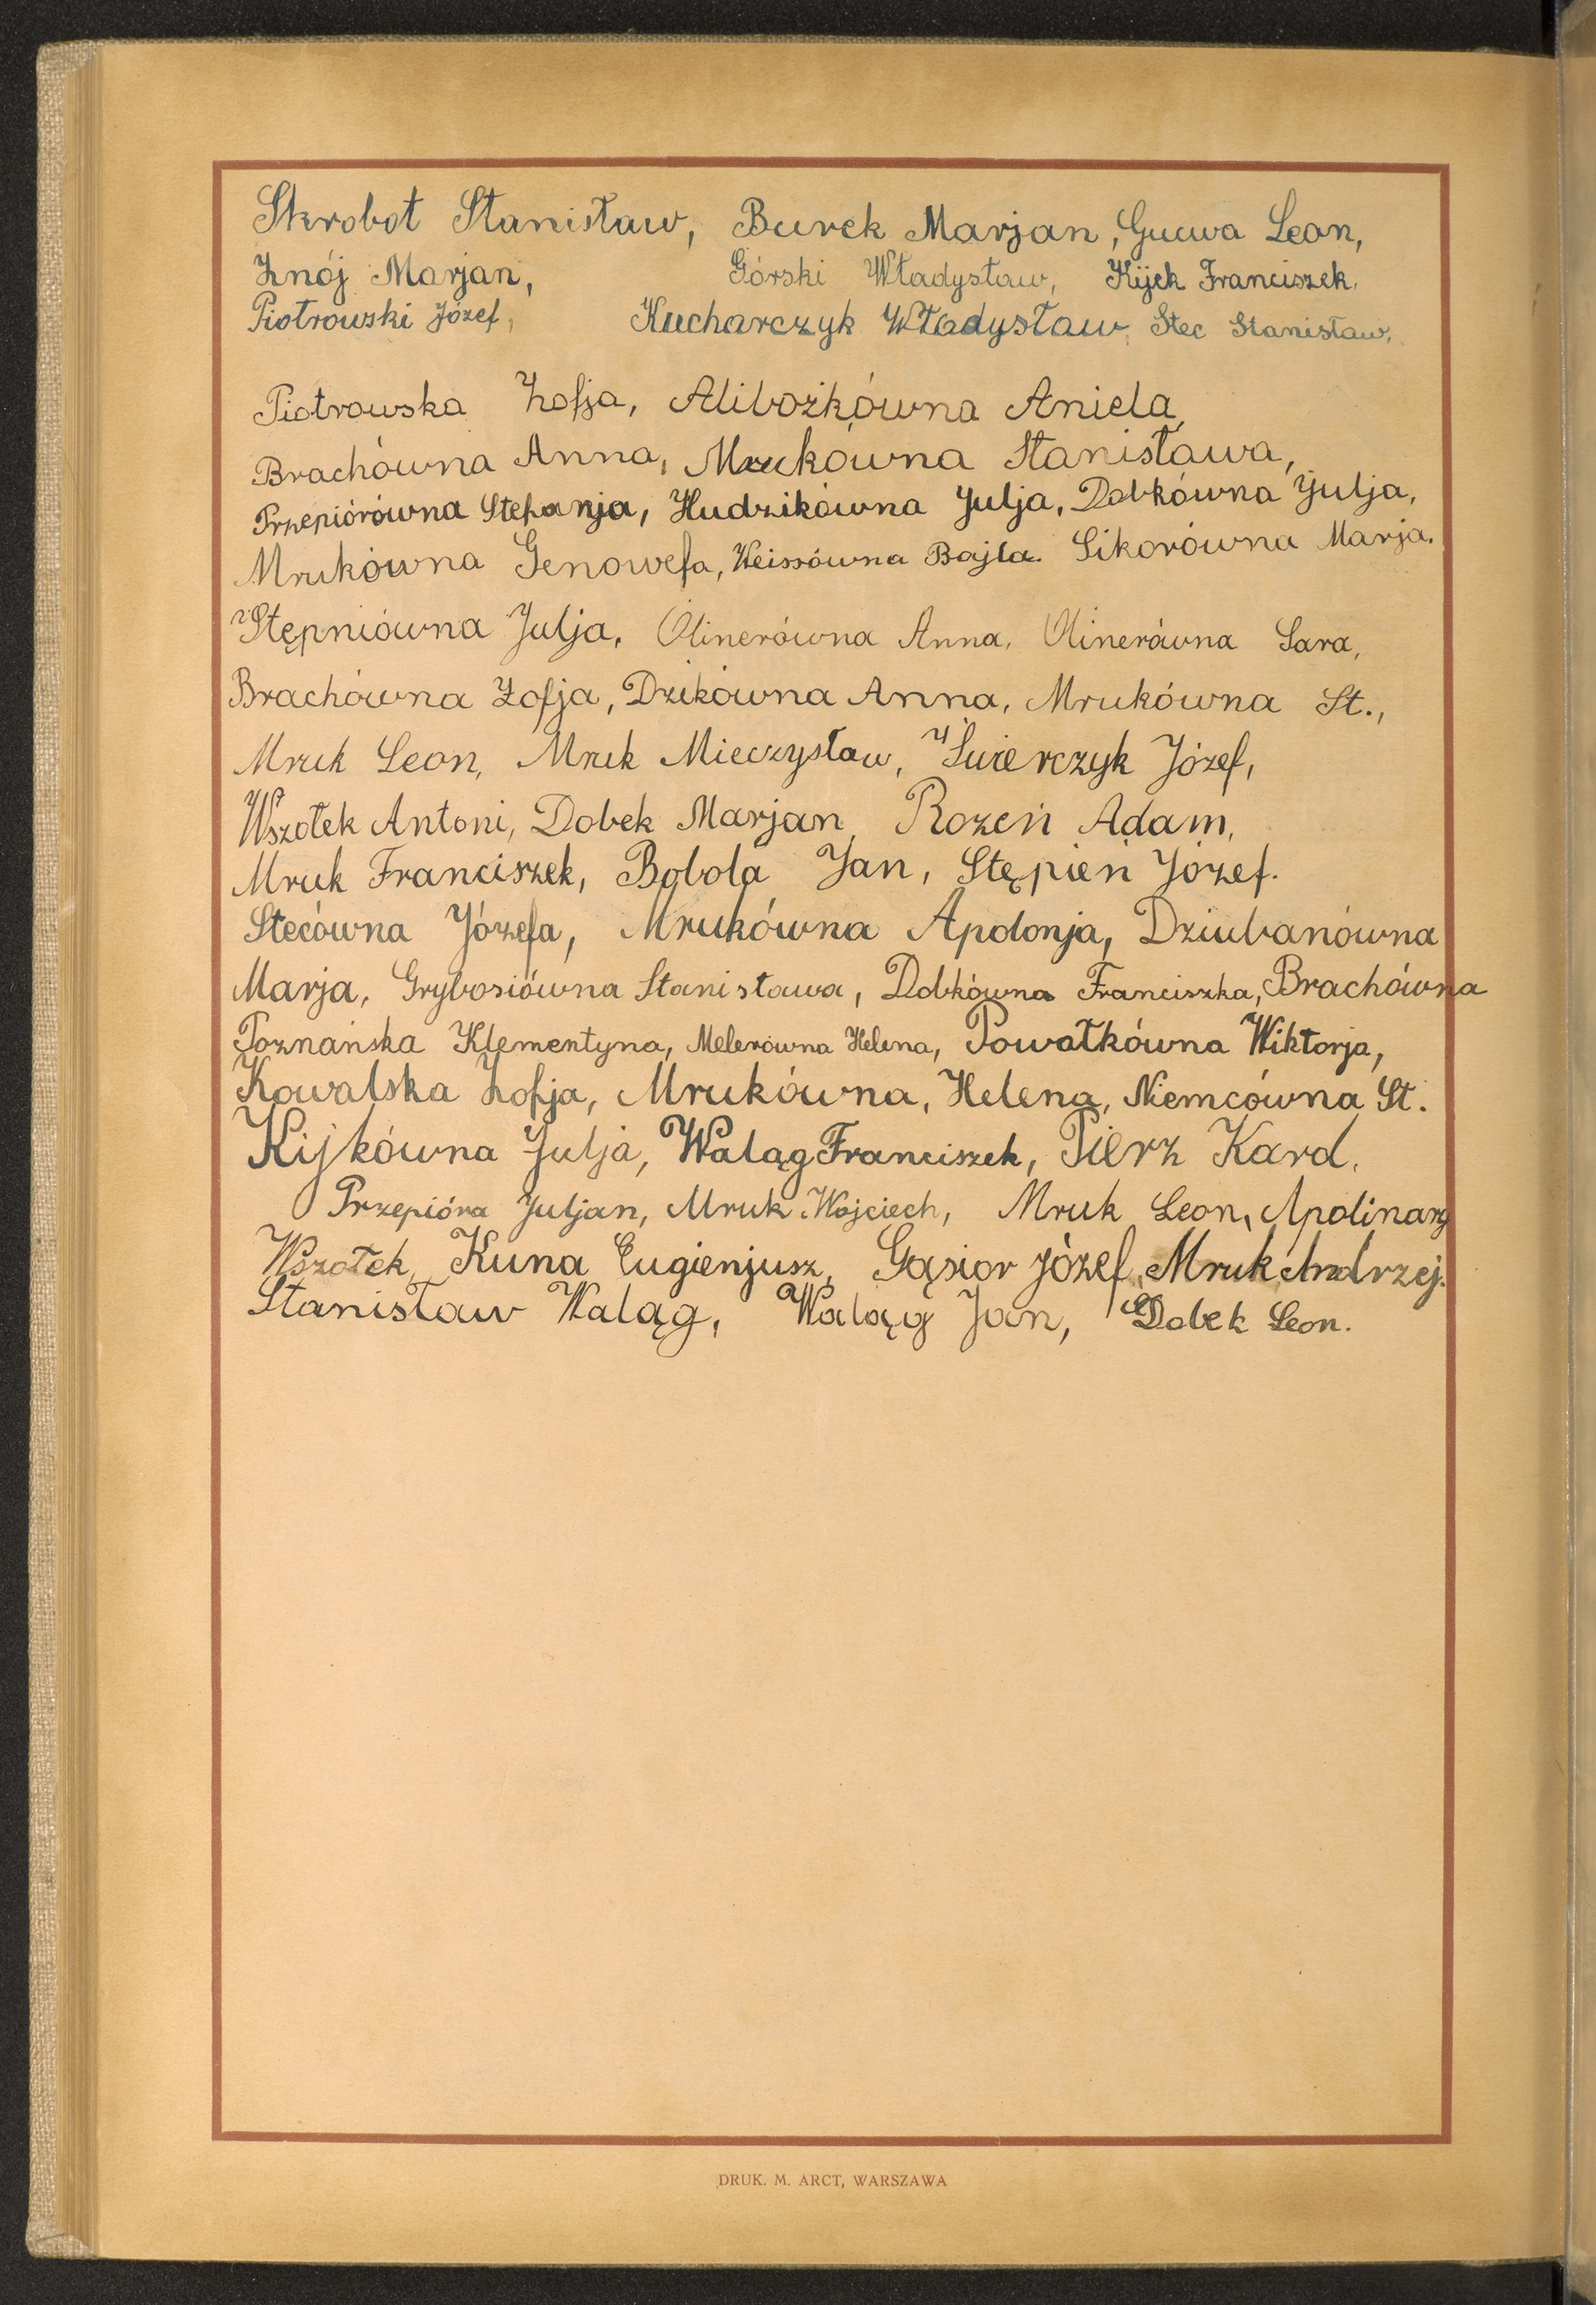 Skrobot Stanisław, Burek Marjan, Gucwa Leon,
Znój Marjan, Górski Władysław, Kijek Franciszek,
Piotrowski Józef, Kucharczyk Władysław, Stec Stanisław,
Piotrowska Zofja, Alibożkówna Aniela,
Brachówna Anna, Mrukówna Stanisława,
Przepiórówna Stefanja, Hudzikówna Julja, Dobkówna Julja,
Mrukówna Genowefa, Weissówna Bajla. Sikorówna Marja.
Stępniówna Julja, Olinerówna Anna, Olinerówna Sara,
Brachówna Zofja, Dzikówna Anna, Mrukówna St.,
Mruk Leon, Mruk Mieczysław, Świerczyk Józef,
Wszołek Antoni, Dobek Marjan, Rozeń Adam,
Mruk Franciszek, Bobola Jan, Stępień Józef.
Stecówna Józefa, Mrukówna Apolonja, Dziubanówna
Marja, Grybosiówna Stanisława, Dobkówna Franciszka, Brachówna
Poznańska Klementyna, Melerówna Helena, Powałkówna Wiktorja,
Kowalska Zofja, Mrukówna, Helena, Niemcówna St.
Kijkówna Julja, Waląg Franciszek, Pierz Karol,
Przepióra Juljan, Mruk Wojciech, Mruk Leon, Apolinary
Wszołek, Kuna Eugienjusz, Gąsior Józef, Mruk Andrzej.
Stanisław Waląg, Waląg Jan, Dobek Leon.
DRUK. M. ARCT, WARSZAWA